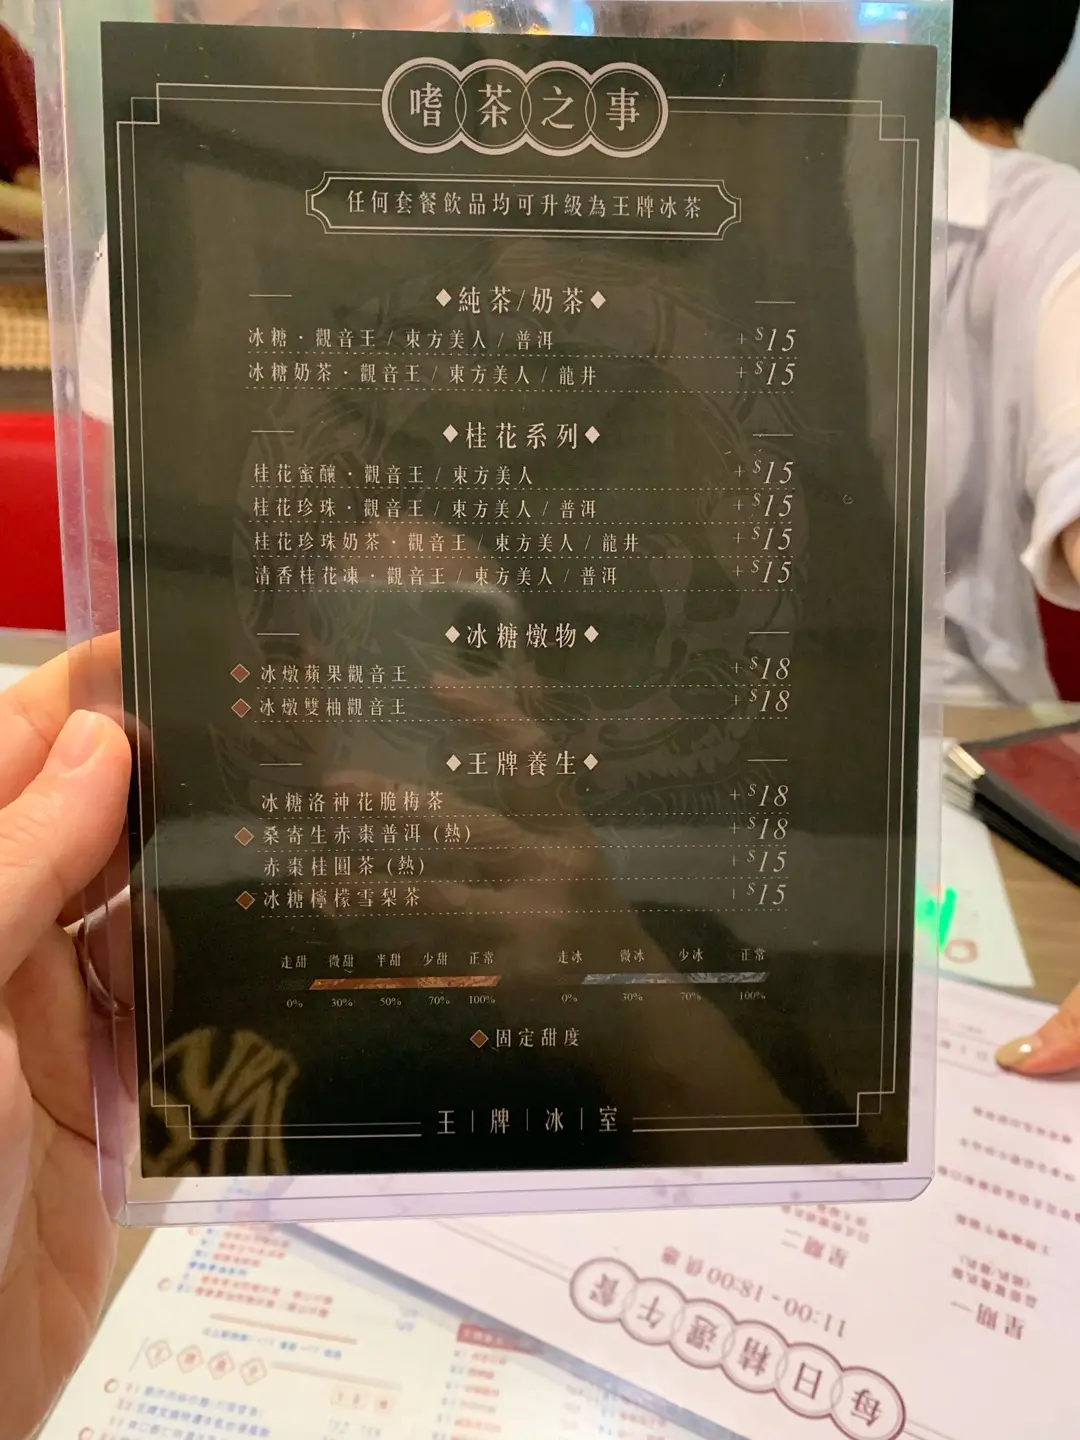 嗜茶之事
任何套餐飲品均可升級為王牌冰茶
◆純茶/奶茶◆
冰糖·觀音王/東方美人/普洱 +$15
冰糖奶茶·觀音王/東方美人/龍井 +$15
◆桂花系列◆
桂花蜜釀·觀音王/東方美人 +$15
桂花珍珠·觀音王/東方美人/普洱 +$15
桂花珍珠奶茶·觀音王/東方美人/龍井 +$15
清香桂花凍·觀音王/東方美人/普洱 +$15
◆冰糖燉物◆
◆冰燉蘋果觀音王 +$18
◆冰燉雙柚觀音王 +$18
◆王牌養生◆
冰糖洛神花脆梅茶 +$18
◆桑寄生赤棗普洱(熱) +$18
赤棗桂圓茶(熱) +$15
◆冰糖檸檬雪梨茶 +$15
走甜 微甜 半甜 少甜 正常 走冰 微冰 少冰 正常
0% 30% 50% 70% 100% 0% 30% 70% 100%
◆固定甜度
王|牌|冰|室
每日精選午餐
11:00 - 18:00 供應
星期一
星期二